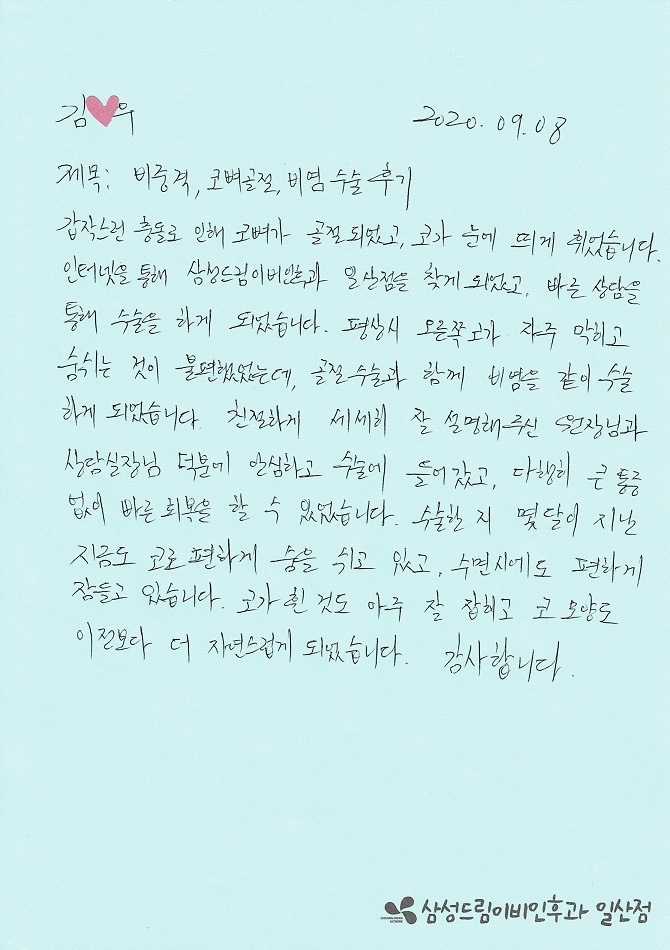 김♥우 2020. 09. 08
제목: 비중격, 코뼈골절, 비염 수술 후기
갑작스런 충돌로 인해 코뼈가 골절되었고, 코가 눈에 띄게 휘었습니다.
인터넷을 통해 삼성드림이비인후과 일산점을 찾게 되었고, 빠른 상담을
통해 수술을 하게 되었습니다. 평상시 오른쪽 코가 자주 막히고
숨쉬는 것이 불편했었는데, 골절 수술과 함께 비염을 같이 수술
하게 되었습니다. 친절하게 세세히 잘 설명해주신 원장님과
상담실장님 덕분에 안심하고 수술에 들어갔고, 다행히 큰 통증
없이 빠른 회복을 할 수 있었습니다. 수술한 지 몇 달이 지난
지금도 코로 편하게 숨을 쉬고 있고, 수면시에도 편하게
잠들고 있습니다. 코가 휜 것도 아주 잘 잡히고 코 모양도
이전보다 더 자연스럽게 되었습니다. 감사합니다.
삼성드림이비인후과 일산점